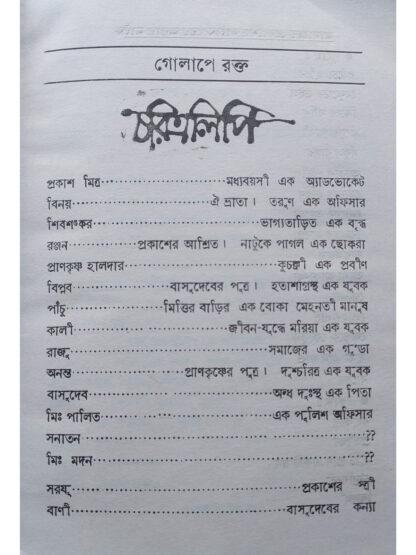 গোলাপে রক্ত
চরিত্রলিপি
প্রকাশ মিত্র..............................মধ্যবয়সী এক অ্যাডভোকেট
বিনয়..............................ঐ ভ্রাতা। তরুণ এক অফিসার
শিবশঙ্কর..............................ভাগ্যতাড়িত এক বৃদ্ধ
রঞ্জন..............................প্রকাশের আশ্রিত। নাটুকে পাগল এক ছোকরা
প্রাণকৃষ্ণ হালদার..............................কুচক্রী এক প্রবীণ
বিপ্লব..............................বাসুদেবের পুত্র। হতাশাগ্রস্থ এক যুবক
পাঁচু..............................মিত্তির বাড়ির এক বোকা মেহনতী মানুষ
কালী..............................জীবন-যুদ্ধে মরিয়া এক যুবক
রাজু..............................সমাজের এক গুন্ডা
অনন্ত..............................প্রাণকৃষ্ণের পুত্র। দুশ্চরিত্র এক যুবক
বাসুদেব..............................অন্ধ দুঃস্থ এক পিতা
মিঃ পালিত..............................এক পুলিশ অফিসার
সনাতন..............................??
মিঃ মদন..............................??
সরযু..............................প্রকাশের স্ত্রী
বাণী..............................বাসুদেবের কন্যা